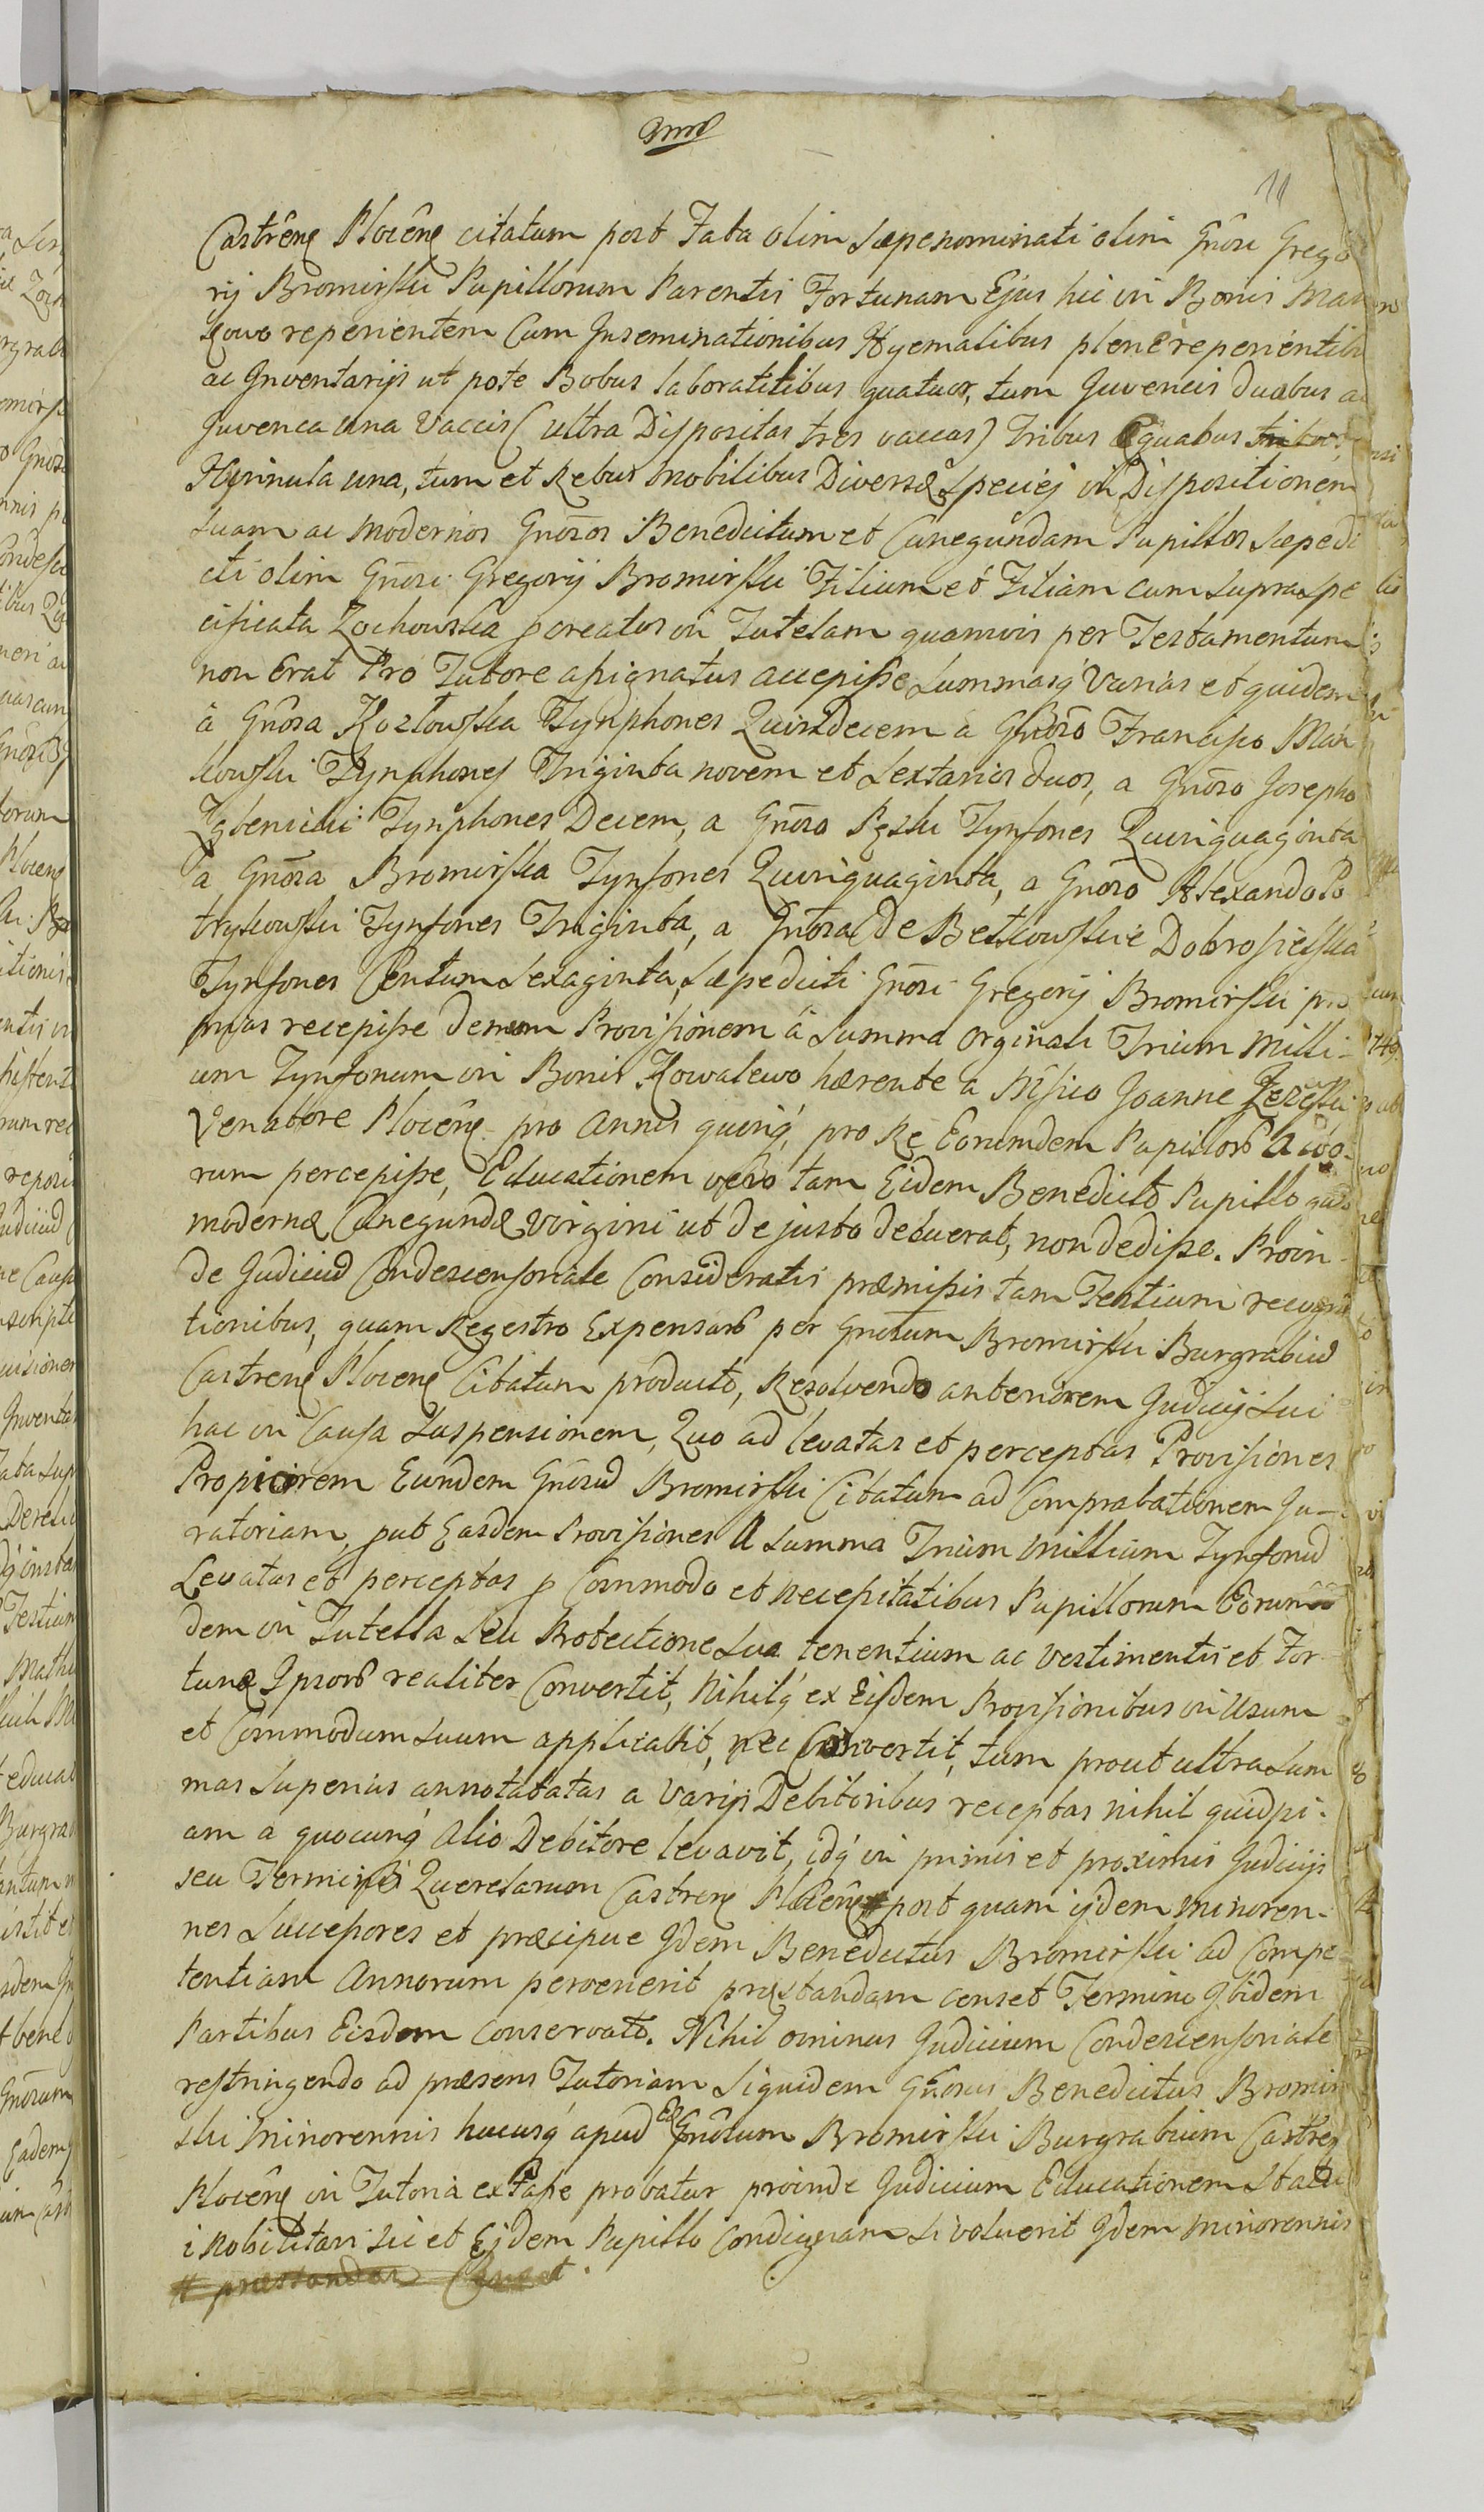 11
Castrenẽ Plocenẽ citatum post Fata olim sæpenominati olim Gnôsi Grego
rij Bromirski Pupillorum Parentis Fortunam Ejus hic in Bonis Man
kowo reperientem Cum Inseminationibus Hyemalibus plenè reperientibu
ac Inventarijs ut pote Bobus laboratitibus quatuor, tum Juvencis duabus ac
Juvenca una Vaccis (ultra Dispositas tres vaccas) tribus Equabus
Hynnula una, tum et Rebus mobilibus Diversæ Speciej in Dispositionem
suam ac modernos Gnôsos Benedictum et Cunegundam Pupillos sæpedi
cti olim Gnôsi Gregorij Bromirski Filium et Filiam cum supra Spe
cificata Zochowska pcreatos in Tutelam quamvis per Testamentum
non erat Pro Tutore assignatus accepisse Summasq́ Varias et quidem
à Gnôsa Kozłowska Tynphones Quindecem a Gnôso Francisco Man
kowski Tynphones Triginta novem et Sextarios duos, a Gnôso Josepho
Zglenicki Tynphones Decem, a Gnôso Pęski Tynfones Quinquaginta
a Gnôsa Bromirska Tynfones Quinquaginta, a Gnôso Alexandro Po
trykowski Tynfones Triginta, a Gnôsa de Betkowskie Dobrosielska
Tynfones Centum Sexaginta, sæpedicti Gnôsi Gregorij Bromirski pro
prias recepisse demum Provisionem à Summa Orginali Trium Milli-
um Tynfonum in Bonis Kowalewo hærente a Mfico Joanne
Venatore Plocenẽ pro Annis quinq́, pro Re Eorumdem Papillorũ
rum percepisse, Educationem vero tam Eidem Benedicto Pupillo quã
modernæ Cunegundæ Virgini ut de justo debuerat, non dedisse. Proin-
de Judiciũ Condescensoriale Consideratis præmissis tam Testium recogni
tionibus, quam Regestro Expensarũ per Gnôsum Bromirski Burgrabiũ
Castrenẽ Plocenẽ Citatum producto, Resolvendo anteriorem Judicij sui
hac in Causa Suspensionem, Quo ad levatas et perceptas Provisiones
Propiorem Eundem Gnôsũ Bromirski Citatum ad Comprobationem Ju-
ratoriam, put Easdem Provisiones a Summa Trium Millium Tynfonũ
Levatas et perceptas p Commodo et necessitatibus Pupillorum Eorum
dem in Tutella seu Protectione sua tenentium ac vestimentis et For-
tunæ Ipsorũ realiter Convertit, Nihilq́ ex Eisdem Provisionibus in Usum
et Commodum suum applicavit, nec Convertit, tum prout ultra Sum
mas superius annotatatas a Varijs Debitoribus receptas nihil quidpi-
am a quocunq́ Alio Debitore levavit, idq́ in primis et proximis Judicijs
seu Terminis Querelarum Castrenẽ Plocenẽ post quam ijdem minoren-
nes Successores et præcipue Idem Benedictus Bromirski ad Compe-
tentiam Annorum pervenerit præstandam censet Termino Ibidem
Partibus Eisdem Conservato. Nihil ominus Judicium Condescensoriale
restringendo ad præsens Tutoriam siquidem Gnôsus Benedictus Bromir
ski Minorennis hucusq́ apud Eũ Gnôsum Bromirski Burgrabium Castrenẽ
Plocenẽ in Tutoria extasse probatur proinde Judicium Educationem Statu
i Nobilitari sic et Ejdem Pupillo Condignam si voluerit Idem Minorennis
præstandas Censet.